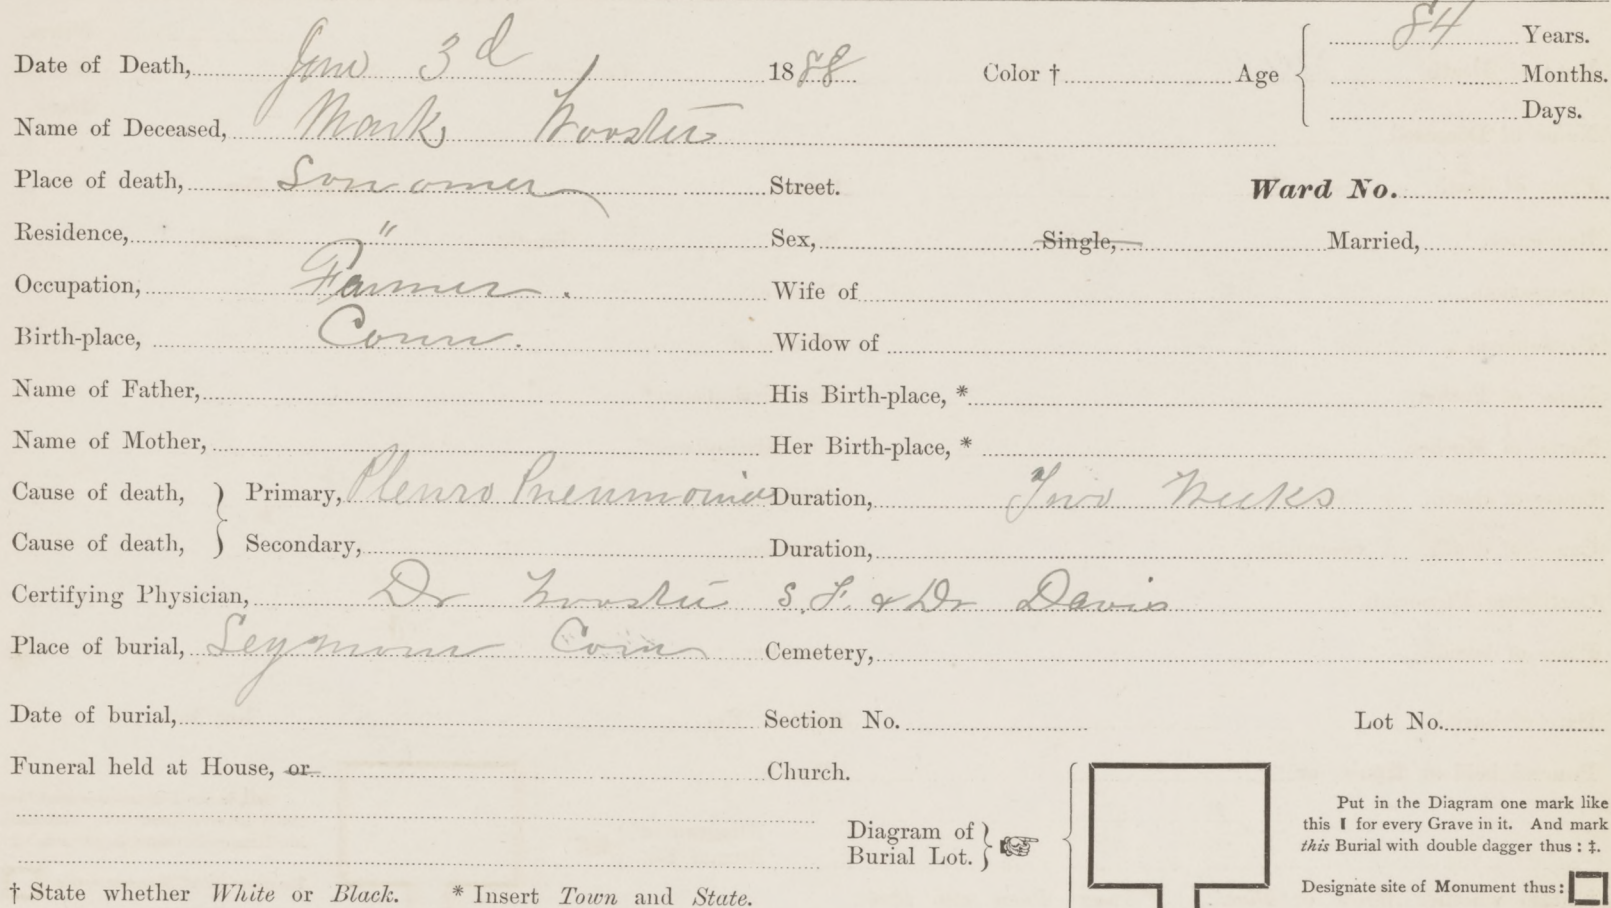 Date of Death, June 3d 1888 Color † Age 84 Years.
Months.
Days.
Name of Deceased, Mark Wooster
Place of death, Sonoma Street. Ward No.
Residence, " Sex, Single, Married,
Occupation, Farmer. Wife of
Birth-place, Conn. Widow of
Name of Father, His Birth-place, *
Name of Mother, Her Birth-place, *
Cause of death, Primary, Pleuro Pneumonia Duration, Two Weeks
Cause of death, Secondary, Duration,
Certifying Physician, Dr Wooster S.F. & Dr Davis
Place of burial, Seymour Conn Cemetery,
Date of burial, Section No. Lot No.
Funeral held at House, or Church.
Diagram of
Burial Lot.
Put in the Diagram one mark like
this I for every Grave in it. And mark
this Burial with double dagger thus: ‡.
Designate site of Monument thus:
† State whether White or Black. * Insert Town and State.